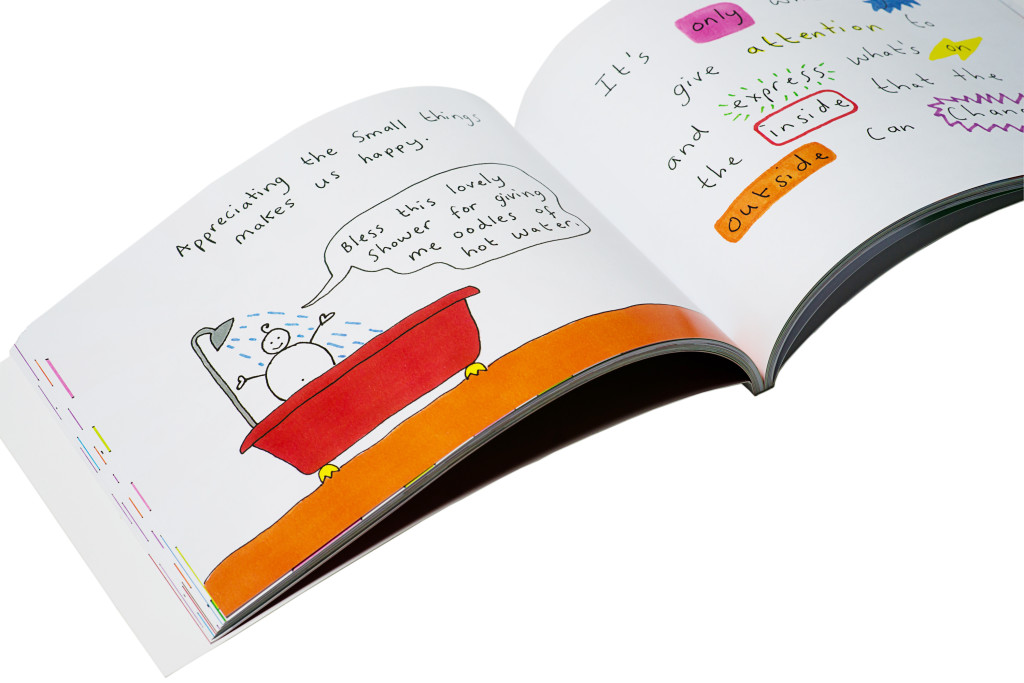 Appreciating the small things
makes us happy.
Bless this lovely
shower for giving
me oodles of
hot water.
It's only
give attention to
and express what's on
the inside that the
outside can